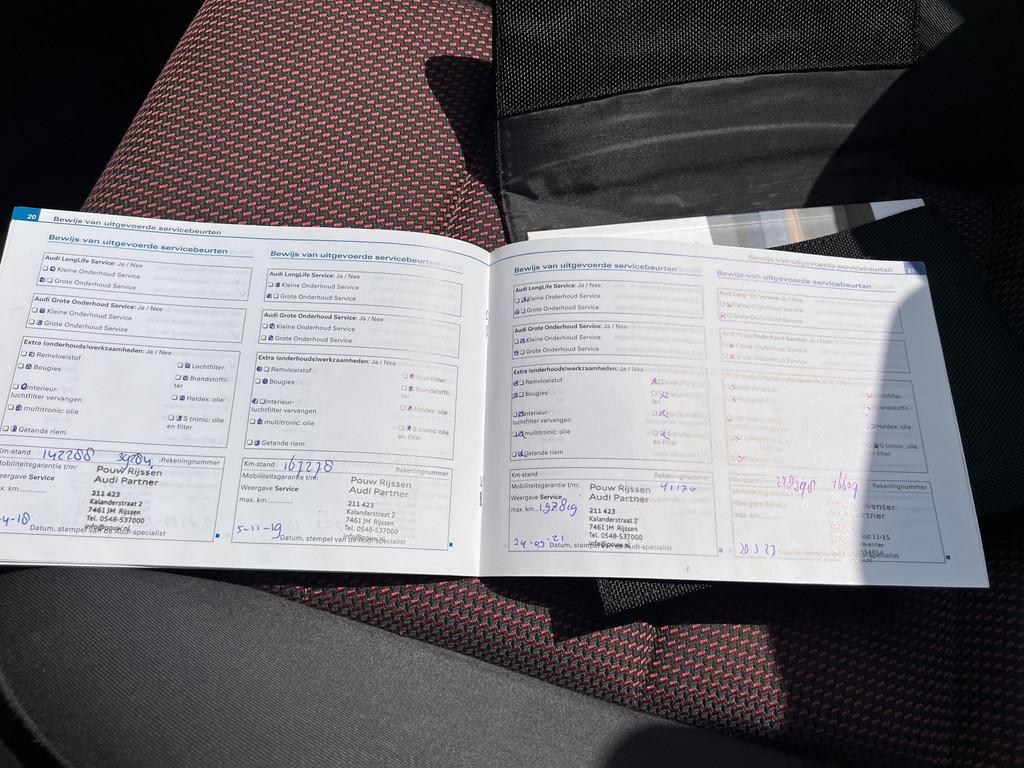 20 Bewijs van uitgevoerde servicebeurten
Bewijs van uitgevoerde servicebeurten
Audi LongLife Service: Ja / Nee
Kleine Onderhoud Service
Grote Onderhoud Service
Audi Grote Onderhoud Service: Ja / Nee
Kleine Onderhoud Service
Grote Onderhoud Service
Extra (onderhouds)werkzaamheden: Ja / Nee
Remvloeistof
Luchtfilter
Bougies
Brandstoffil-
ter
Interieur-
luchtfilter vervangen
Haldex: olie
multitronic: olie
S tronic: olie
en filter
Getande riem
Km-stand 142288
Rekeningnummer
Mobiliteitsgarantie t/m:
Weergave Service
max. km
Pouw Rijssen
Audi Partner
211 423
Kalanderstraat 2
7461 JM Rijssen
Tel. 0548-537000
info@pouw.nl
Datum, stempel van de Audi-specialist
Bewijs van uitgevoerde servicebeurten
Audi LongLife Service: Ja / Nee
Kleine Onderhoud Service
Grote Onderhoud Service
Audi Grote Onderhoud Service: Ja / Nee
Kleine Onderhoud Service
Grote Onderhoud Service
Extra (onderhouds)werkzaamheden: Ja / Nee
Remvloeistof
Luchtfilter
Bougies
Brandstoffil-
ter
Interieur-
luchtfilter vervangen
Haldex: olie
multitronic: olie
S tronic: olie
en filter
Getande riem
Km-stand 167278
Rekeningnummer
Mobiliteitsgarantie t/m:
Weergave Service
max. km
Pouw Rijssen
Audi Partner
211 423
Kalanderstraat 2
7461 JM Rijssen
Tel. 0548-537000
info@pouw.nl
5-11-19
Datum, stempel van de Audi-specialist
Bewijs van uitgevoerde servicebeurten 21
Bewijs van uitgevoerde servicebeurten
Audi LongLife Service: Ja / Nee
Kleine Onderhoud Service
Grote Onderhoud Service
Audi Grote Onderhoud Service: Ja / Nee
Kleine Onderhoud Service
Grote Onderhoud Service
Extra (onderhouds)werkzaamheden: Ja / Nee
Remvloeistof
Bougies
Interieur-
luchtfilter vervangen
multitronic: olie
en filter
Getande riem
Km-stand
Rekeningnummer
Mobiliteitsgarantie t/m:
41120
Weergave Service
max. km 197819
Pouw Rijssen
Audi Partner
211 423
Kalanderstraat 2
7461 JM Rijssen
Tel. 0548-537000
info@pouw.nl
24-03-21
Datum, stempel van de Audi-specialist
Bewijs van uitgevoerde servicebeurten
Kleine Onderhoud Service
Grote Onderhoud Service
Kleine Onderhoud Service
Grote Onderhoud Service
S tronic: olie
en filter
Rekeningnummer
20-3-23